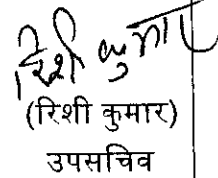 रिशी कुमार
(रिशी कुमार)
उपसचिव